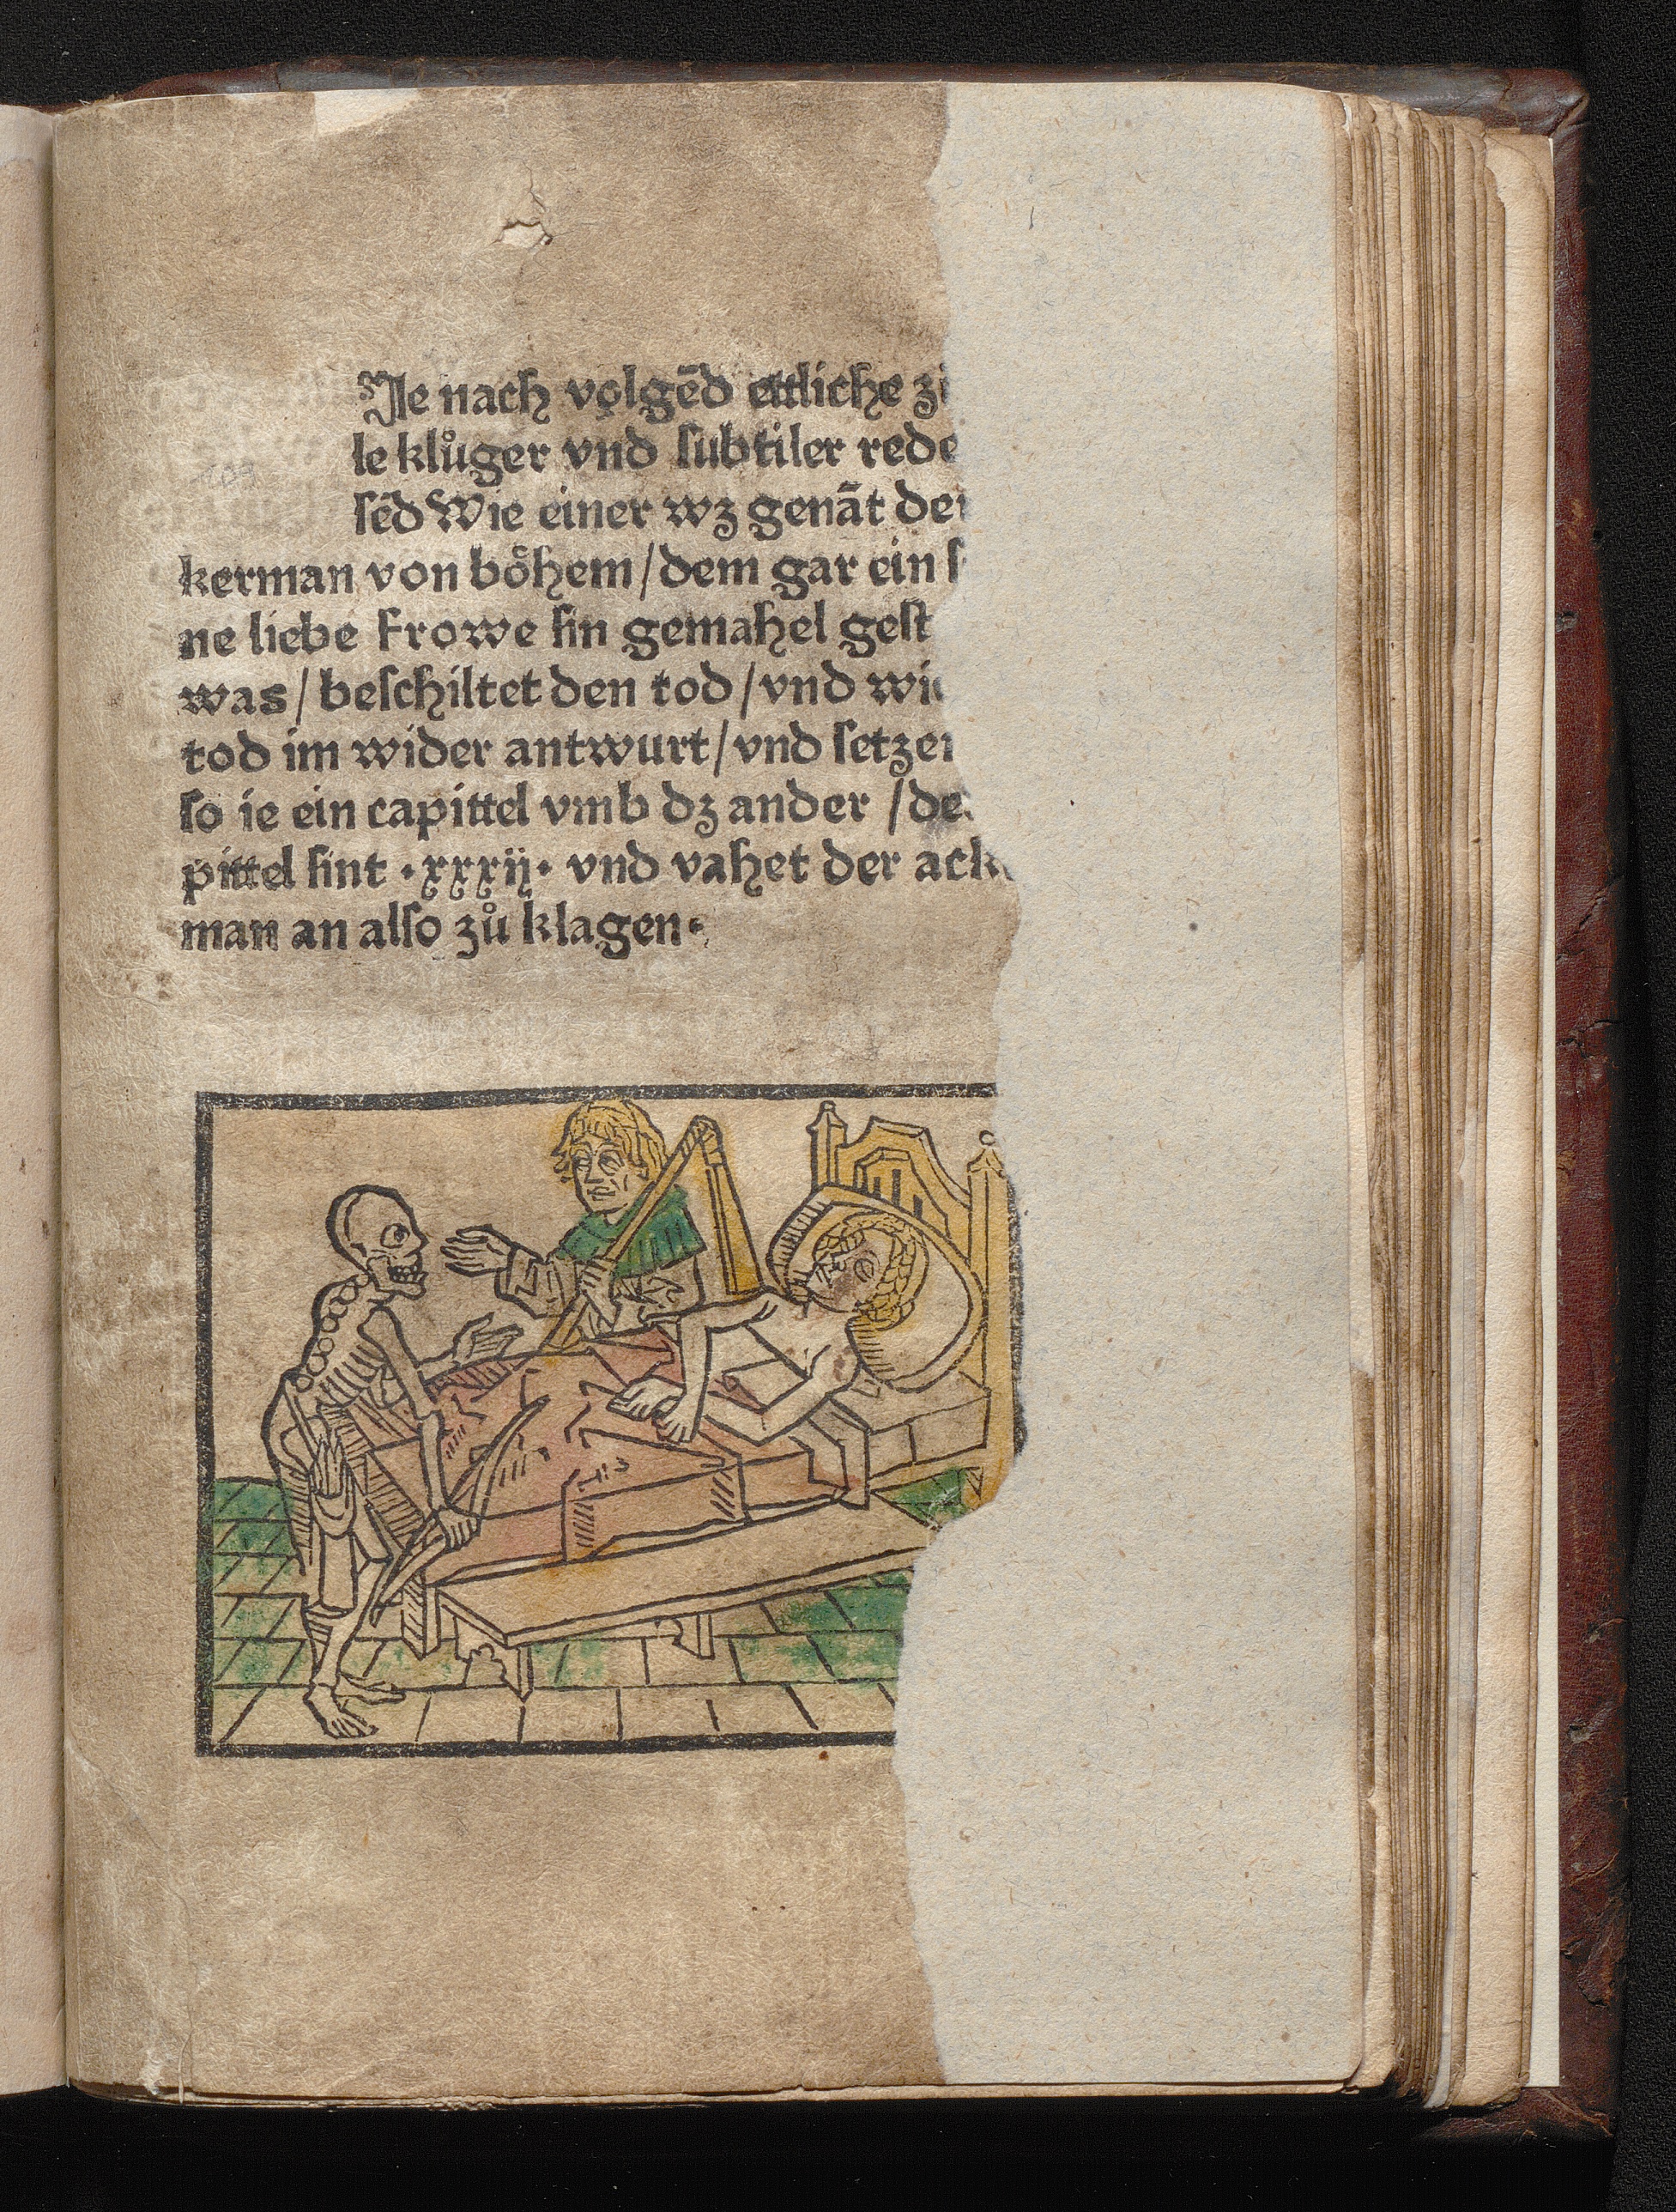 Ie nach volgēd ettliche zi
le klůger vnd ſubtiler rede
ſēd Wie einer wz genāt der
kerman von bőhem/dem gar ein ſ
ne liebe Frowe ſin gemahel geſt
was/beſchiltet den tod/vnd wi
tod im wider antwurt/vnd ſetzen
ſo ie ein capittel vmb dz ander /de
pittel ſint ·xxxij· vnd vahet der ack
man an alſo zů klagen·